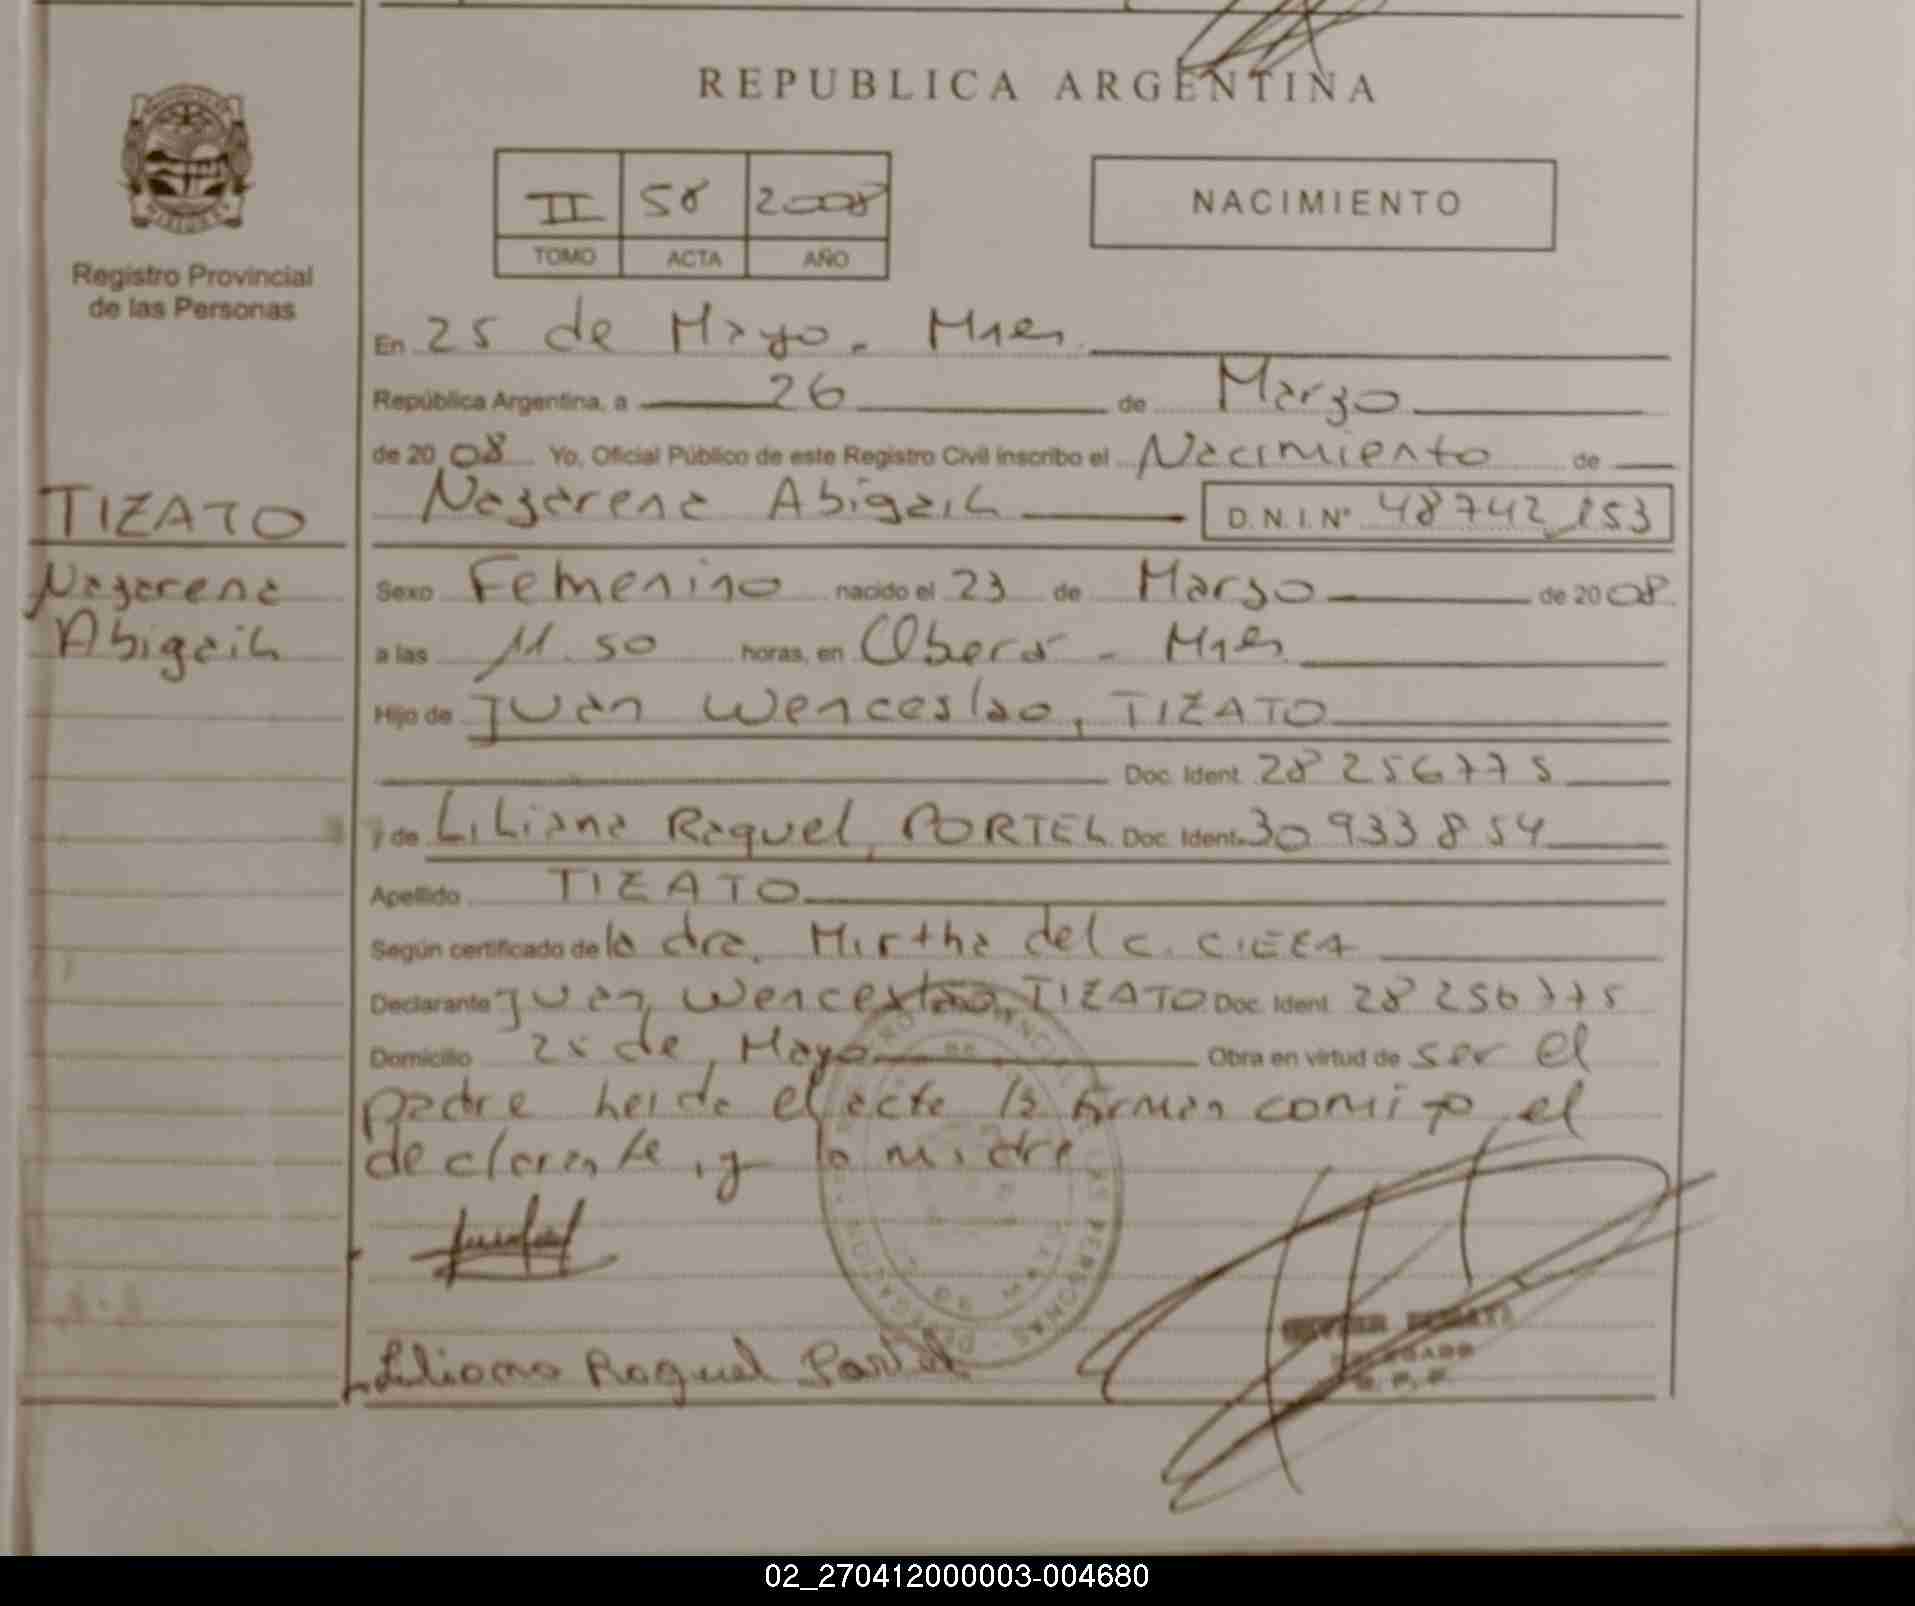 REPUBLICA ARGENTINA
II 58 2008
TOMO ACTA AÑO
NACIMIENTO
Registro Provincial
de las Personas
En 25 de Mayo - Mnes
República Argentina, a 26 de Marzo
de 2008 Yo, Oficial Público de este Registro Civil inscribo el Nacimiento de
Nazarena Abigail D.N.I. Nº 48742153
TIZATO
Nazarena
Abigail
Sexo Femenino nacido el 23 de Marzo de 2008
a las 11.50 horas, en Oberá - Mnes
Hijo de Juan Wenceslao, TIZATO
Doc. Ident. 28256775
y de Liliana Raquel, PORTEL Doc. Ident. 30933854
Apellido TIZATO
Según certificado de la dra. Mirtha del C.
Declarante Juan Wenceslao, TIZATO Doc. Ident. 28256775
Domicilio 25 de Mayo Obra en virtud de ser el
padre leida el acta la firman comigo el
declarante, y la madre
Liliana Raquel Portel
02_270412000003-004680